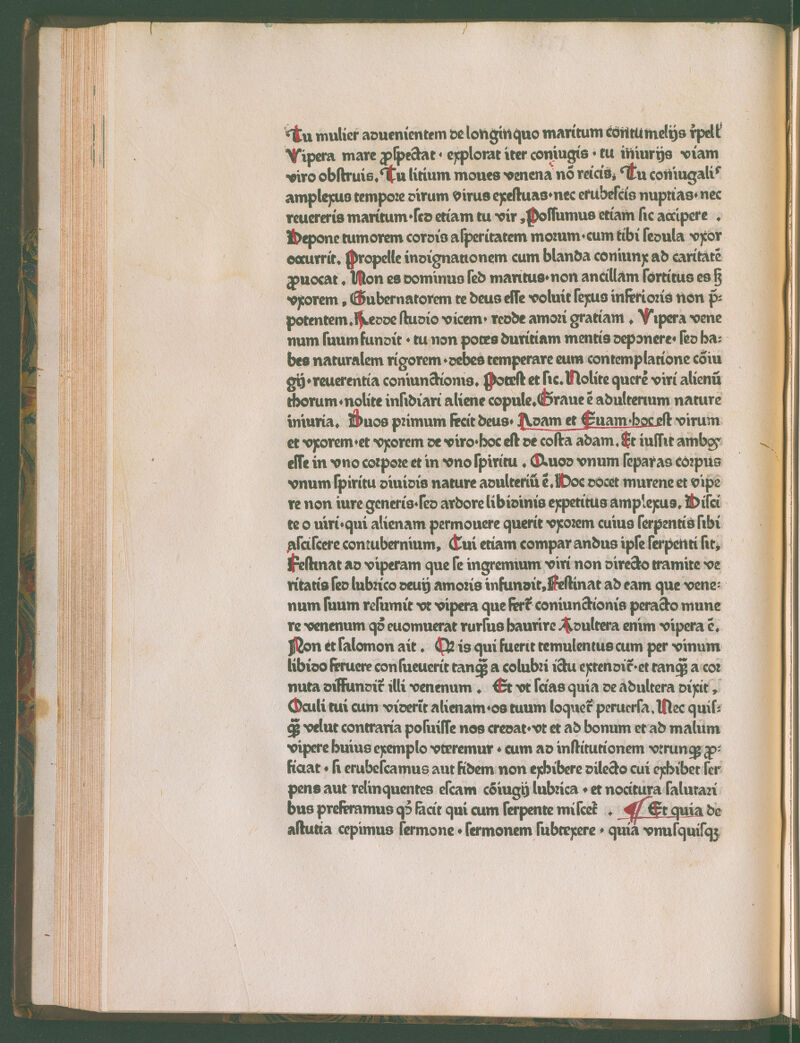 Tu mulier aduenientem de longinquo maritum cōntumelijs r̄pell'
Vipera mare ꝓſpectat · explorat iter coniugis · tu iniurijs viam
viro obſtruis. Tu litium moues venena nō reicis, Tu coniugali⁹
amplexus tempore dirum virus exeſtuas·nec erubeſcis nuptias·nec
reuereris maritum·ſed etiam tu vir, Poſſumus etiam ſic accipere .
Depone tumorem cordis aſperitatem morum·cum tibi ſedula vxor
occurrit. Propelle indignationem cum blanda coniunx ad caritatē
ꝓuocat . Non es dominus ſed maritus·non ancillam ſortitus es ſꝫ
vxorem , Gubernatorem te deus eſſe voluit ſexus inferioris non p̄-
potentem. Redde ſtudio vicem· redde amori gratiam . Vipera vene
num ſuum fundit · tu non potes duritiam mentis deponere· ſed ha-
bes naturalem rigorem·debes temperare eum contemplatione cōiu
gij·reuerentia coniunctionis. Poteſt et ſic. Nolite querē viri alienū
thorum·nolite inſidiari aliene copule. Graue ē adulterium nature
iniuria. Duos primum fecit deus· Adam et Euam·hoc eſt virum
et vxorem·et vxorem de viro·hoc eſt de coſta adam. Et iuſſit amboꝫ
eſſe in vno corpore et in vno ſpiritu . Quod vnum ſeparas corpus
vnum ſpiritu diuidis nature adulteriū ē. Hoc docet murene et vipe
re non iure generis·ſed ardore libidinis expetitus amplexus. Diſci
te o uiri·qui alienam permouere querit vxorem cuius ſerpentis ſibi
aſciſcere contubernium, Cui etiam comparandus ipſe ſerpenti ſit,
Feſtinat ad viperam que ſe ingremium viri non directo tramite ve
ritatis ſed lubrico deuij amoris infundit, Feſtinat ad eam que vene-
num ſuum reſumit vt vipera que fert̄ coniunctionis peracto mune
re venenum qd̄ euomuerat rurſus haurire Adultera enim vipera ē.
Non et ſalomon ait . Qr is qui fuerit temulentus cum per vinum
libido feruere conſueuerit tanqꝫ̄ a colubri ictu extendit̄·et tanqꝫ̄ a cor
nuta diffundit̄ illi venenum . Et vt ſcias quia de adultera dixit ,
Oculi tui cum viderit alienam·os tuum loquet̄ peruerſa. Nec quiſ-
qꝫ̄ velut contraria poſuiſſe nos credat·vt et ad bonum et ad malum
vipere huius exemplo vteremur · cum ad inſtitutionem vtrunqꝫ ꝓ-
ficiat · ſi erubeſcamus aut fidem non exhibere dilecto cui exhibet ſer
pens aut relinquentes eſcam cōiugij lubrica · et nocitura ſalutari
bus preferamus qd̄ facit qui cum ſerpente miſcet̄ . ¶ Et quia de
aſtutia cepimus ſermone · ſermonem ſubtexere · quia vnuſquiſqꝫ